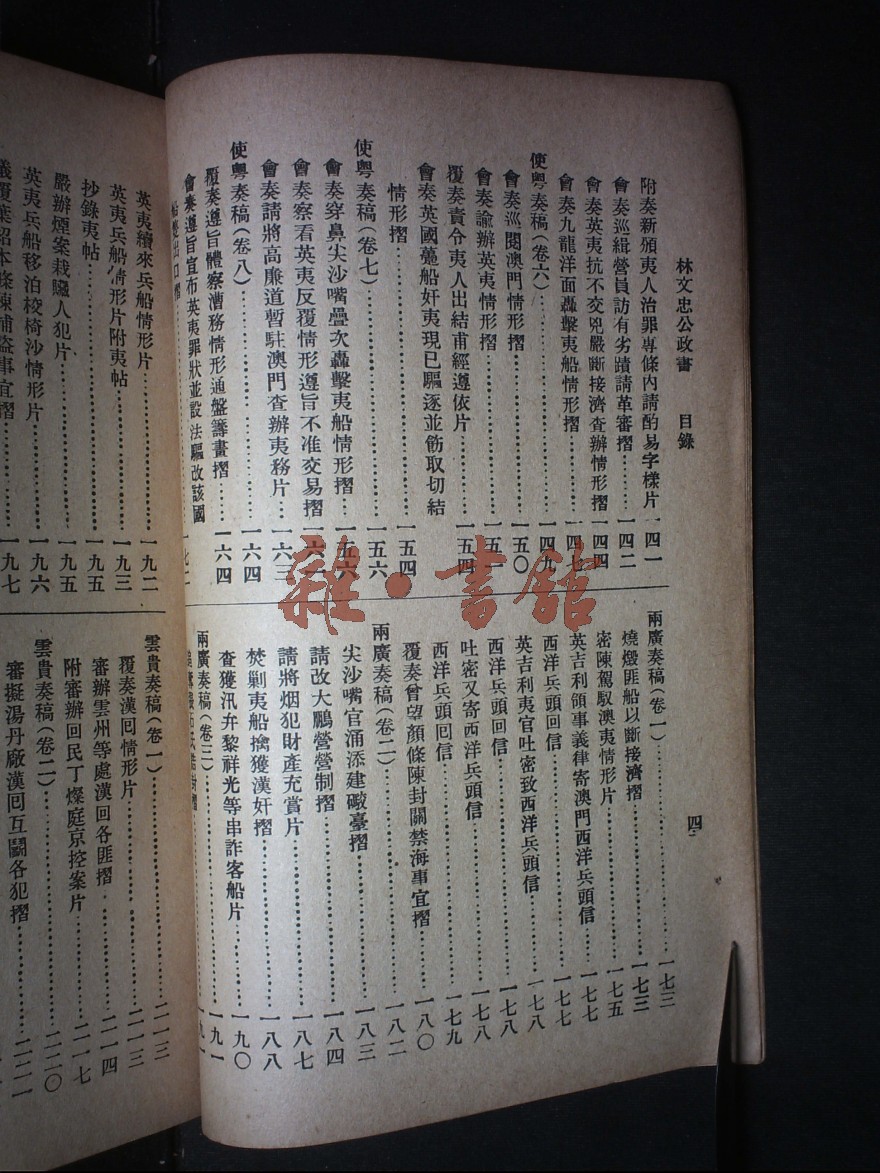 林文忠公政書　目錄　四
附奏新頒夷人治罪專條內請酌易字樣片一四一
會奏巡緝營員訪有劣蹟請革審摺…………一四二
會奏英夷抗不交兇嚴斷接濟查辦情形摺一四四
會奏九龍洋面轟擊夷船情形摺…………一四七
使粵奏稿(卷六)…………一四九
會奏巡閱澳門情形摺…………一五〇
會奏諭辦英夷情形摺…………一五一
覆奏責令夷人出結甫經遵依片…………一五四
會奏英國躉船奸夷現已驅逐並飭取切結
情形摺…………一五四
使粵奏稿(卷七)…………一五六
會奏穿鼻尖沙嘴疊次轟擊夷船情形摺…一五六
會奏察看英夷反覆情形遵旨不准交易摺
會奏請將高廉道暫駐澳門查辦夷務片…一六三
使粵奏稿(卷八)…………一六四
覆奏遵旨體察漕務情形通盤籌畫摺…一六四
會奏遵旨宣布英夷罪狀並設法驅改該國
兩廣奏稿(卷一)…………一七三
燒燬匪船以斷接濟摺…………一七三
密陳駕馭澳夷情形片…………一七五
英吉利領事義律寄澳門西洋兵頭信……一七七
西洋兵頭回信…………一七七
英吉利夷官吐密致西洋兵頭信…………一七八
西洋兵頭回信…………一七八
吐密又寄西洋兵頭信…………一七八
西洋兵頭回信…………一七九
覆奏曾望顏條陳封關禁海事宜摺…………一八〇
兩廣奏稿(卷二)…………一八二
尖沙嘴官涌添建礮臺摺…………一八三
請改大鵬營營制摺…………一八四
請將烟犯財產充賞片…………一八七
焚剿夷船擒獲漢奸摺…………一八八
查獲汛弁黎祥光等串詐客船片…………一九〇
兩廣奏稿(卷三)…………一九一
英夷續來兵船情形片…………一九二
英夷兵船情形片附夷帖…………一九三
抄錄夷帖…………一九五
嚴辦煙案栽贜人犯片…………一九五
英夷兵船移泊校椅沙情形片…………一九六
議覆葉紹本條陳捕盜事宜摺…………一九七
雲貴奏稿(卷一)…………二一三
覆奏漢回情形片…………二一三
審辦雲州等處漢回各匪摺…………二一四
附審辦回民丁燦庭京控案片…………二一七
雲貴奏稿(卷二)…………二二〇
審擬湯丹廠漢回互鬭各犯摺…………二二一
雜·書館